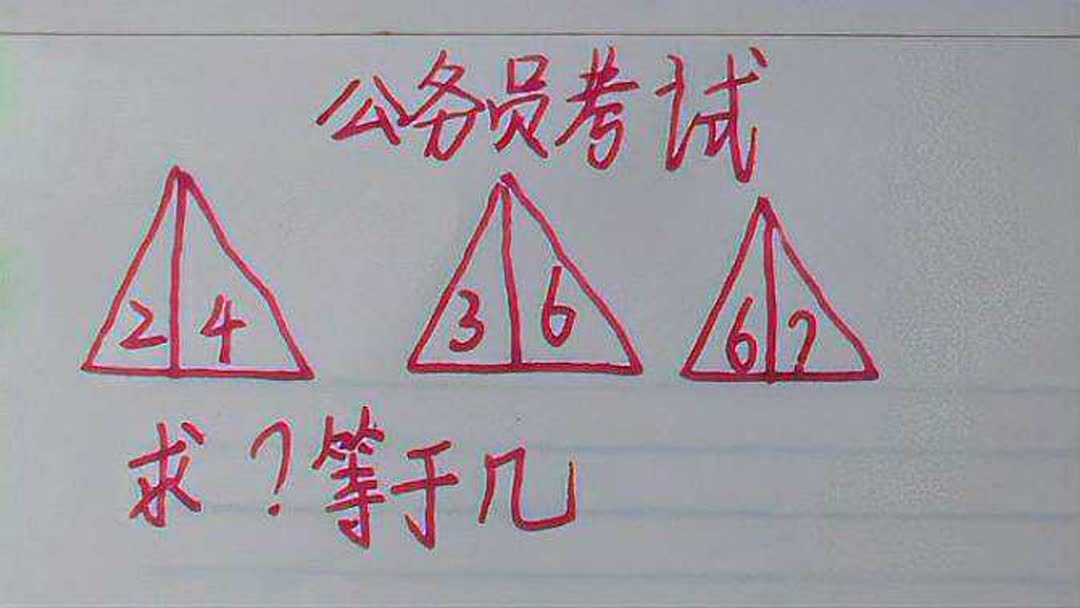 公务员考试
2 4 3 6 6 ?
求?等于几